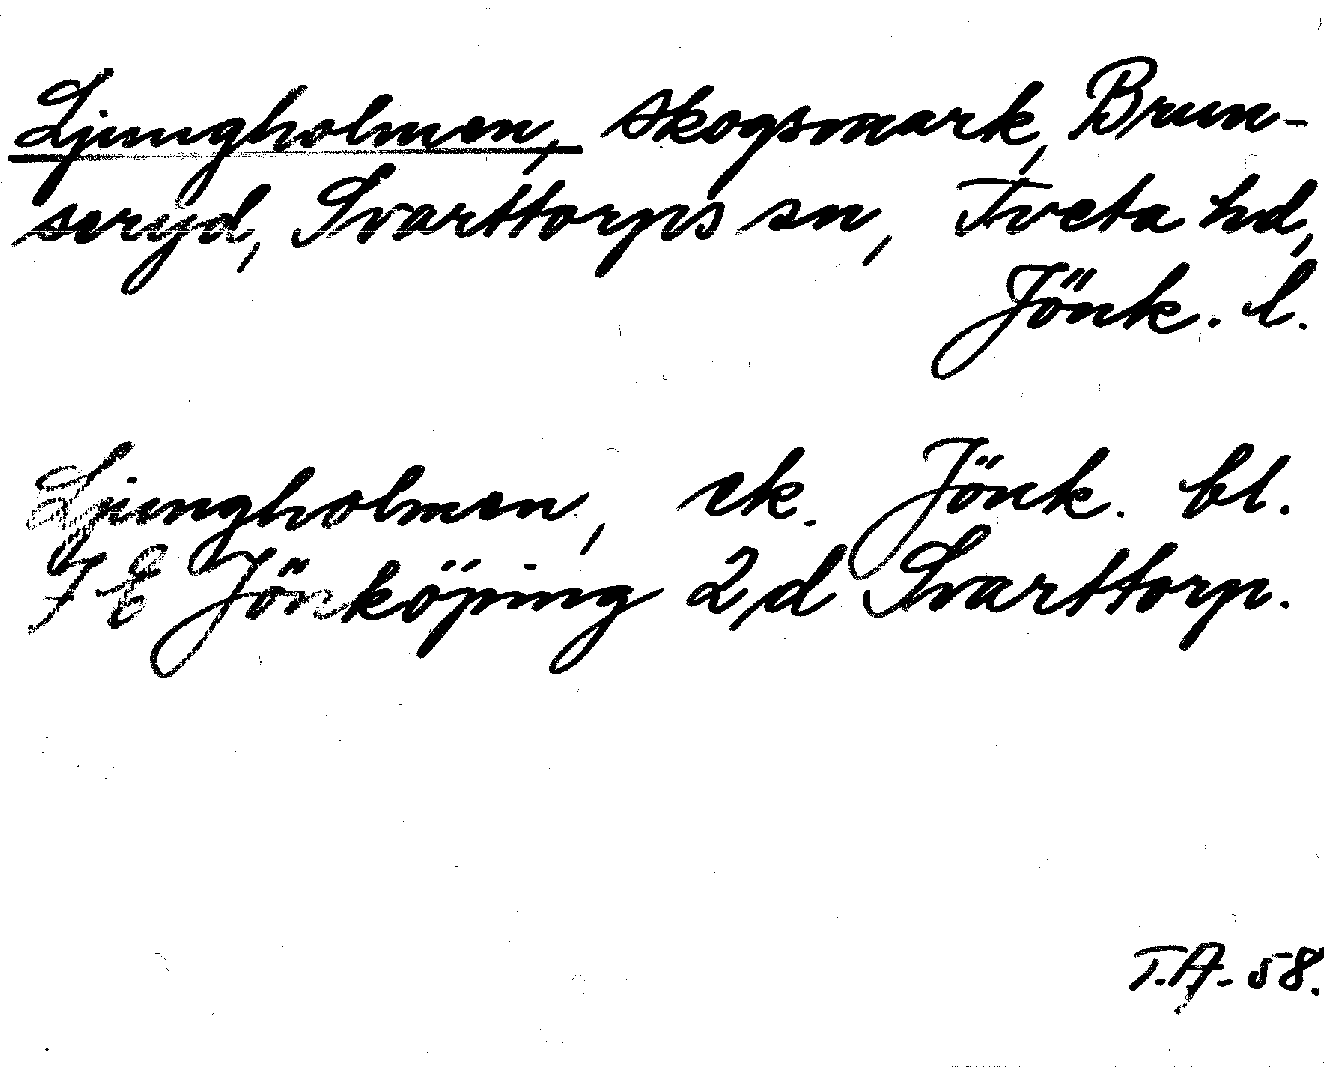 Ljungholmen, skogsmark, Brun-
seryd, Svarttorps sn, Tveta hd,
Jönk. l.
Ljungholmen, ek. Jönk. bl.
7 E Jönköping 2,d Svarttorp.
T.A. 58.